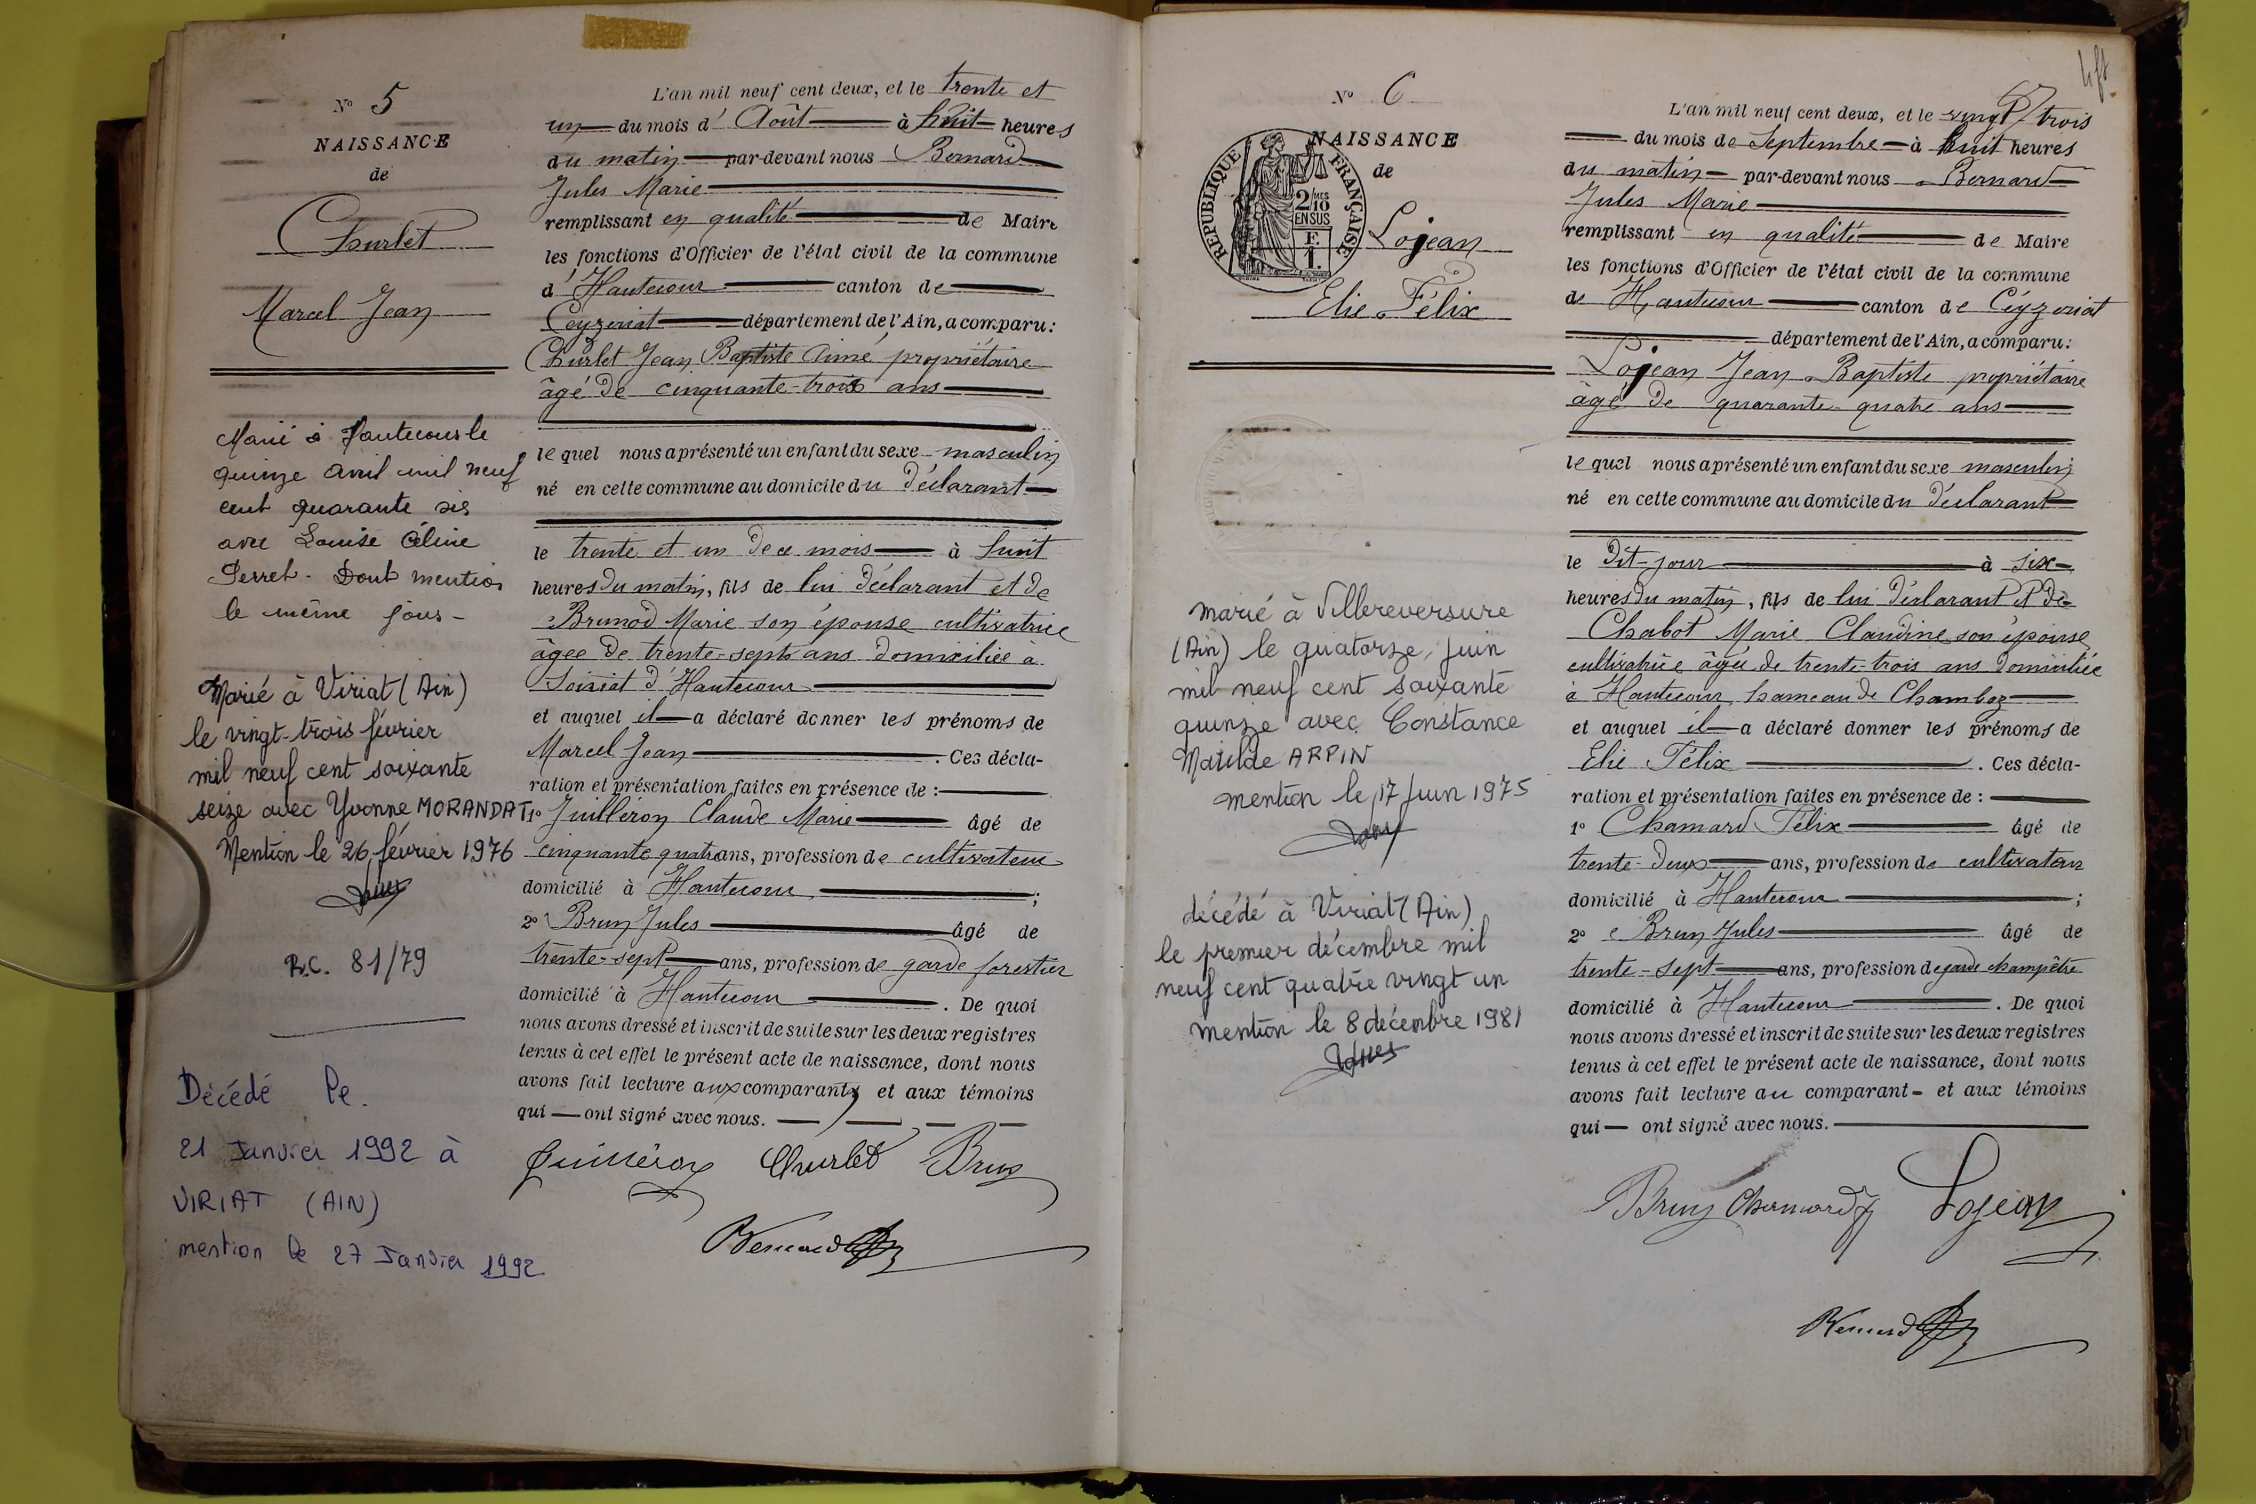 N° 5
NAISSANCE
de
Churlet
Marcel Jean
Marié à Hautecour le
quinze avril mil neuf
cent quarante six
avec Louise Céline
Perret. Dont mention
le même jour -
Marié à Viriat (Ain)
le vingt-trois février
mil neuf cent soixante
seize avec Yvonne MORANDAT
Mention le 26 février 1976
R.C. 81/79
Décédé le.
21 Janvier 1992 à
VIRIAT (AIN)
mention le 27 Janvier 1992
L'an mil neuf cent deux, et le trente et
un du mois d' Août à huit heures
du matin par-devant nous Bernard
Jules Marie
remplissant en qualité de Maire
les fonctions d'Officier de l'état civil de la commune
d' Hautecour canton de
Ceyzeriat département de l'Ain, a comparu:
Churlet Jean Baptiste Aimé, propriétaire
âgé de cinquante-trois ans
le quel nous a présenté un enfant du sexe masculin
né en cette commune au domicile du déclarant
le trente et un de ce mois à huit
heures du matin, fils de lui déclarant et de
Brunod Marie son épouse cultivatrice
âgée de trente-sept ans domiciliée à
d'Hautecour
et auquel il a déclaré donner les prénoms de
Marcel Jean . Ces décla-
ration et présentation faites en présence de :
1° Juilléron Claude Marie âgé de
cinquante quatre ans, profession de cultivateur
domicilié à Hautecour ;
2° Brun Jules âgé de
trente-sept ans, profession de garde forestier
domicilié à Hautecour . De quoi
nous avons dressé et inscrit de suite sur les deux registres
tenus à cet effet le présent acte de naissance, dont nous
avons fait lecture aux comparants et aux témoins
qui ont signé avec nous.
Juilléron Churlet Brun
Bernard
N° 6
NAISSANCE
de
REPUBLIQUE FRANÇAISE
2/10MES
EN SUS
F.
1.
Lojean
Elie Félix
marié à Villereversure
(Ain) le quatorze juin
mil neuf cent soixante
quinze avec Constance
Matilde ARPIN
mention le 17 Juin 1975
décédé à Viriat (Ain)
le premier décembre mil
neuf cent quatre vingt un
mention le 8 décembre 1981
L'an mil neuf cent deux, et le vingt trois
du mois de Septembre à huit heures
du matin par-devant nous Bernard
Jules Marie
remplissant en qualité de Maire
les fonctions d'Officier de l'état civil de la commune
de Hautecour canton de Céyzeriat
département de l'Ain, a comparu:
Lojean Jean Baptiste propriétaire
âgé de quarante-quatre ans
le quel nous a présenté un enfant du sexe masculin
né en cette commune au domicile du déclarant
le dit-jour à six
heures du matin, fils de lui déclarant et de
Chabot Marie Claudine son épouse
cultivatrice âgée de trente-trois ans domiciliée
à Hautecour hameau de Chamboz
et auquel il a déclaré donner les prénoms de
Elie Félix . Ces décla-
ration et présentation faites en présence de :
1° Chamard Félix âgé de
trente-deux ans, profession de cultivateur
domicilié à Hautecour ;
2° Brun Jules âgé de
trente-sept ans, profession de garde champêtre
domicilié à Hautecour . De quoi
nous avons dressé et inscrit de suite sur les deux registres
tenus à cet effet le présent acte de naissance, dont nous
avons fait lecture au comparant - et aux témoins
qui ont signé avec nous.
Brun Chamard Lojean
Bernard